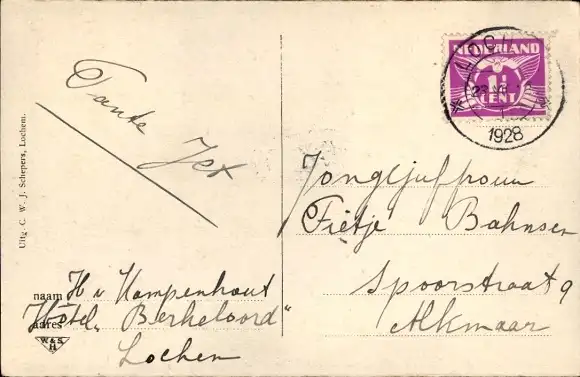 Tante
Jet
Uitg. C. W. J. Schepers, Lochem.
naam H v Kampenhout
adres Hotel „Berkeloord"
Lochem
W & S
H
NEDERLAND
1½
CENT
1928
Jongejuffrouw
Fietje Bahnsen
Spoorstraat 9
Alkmaar